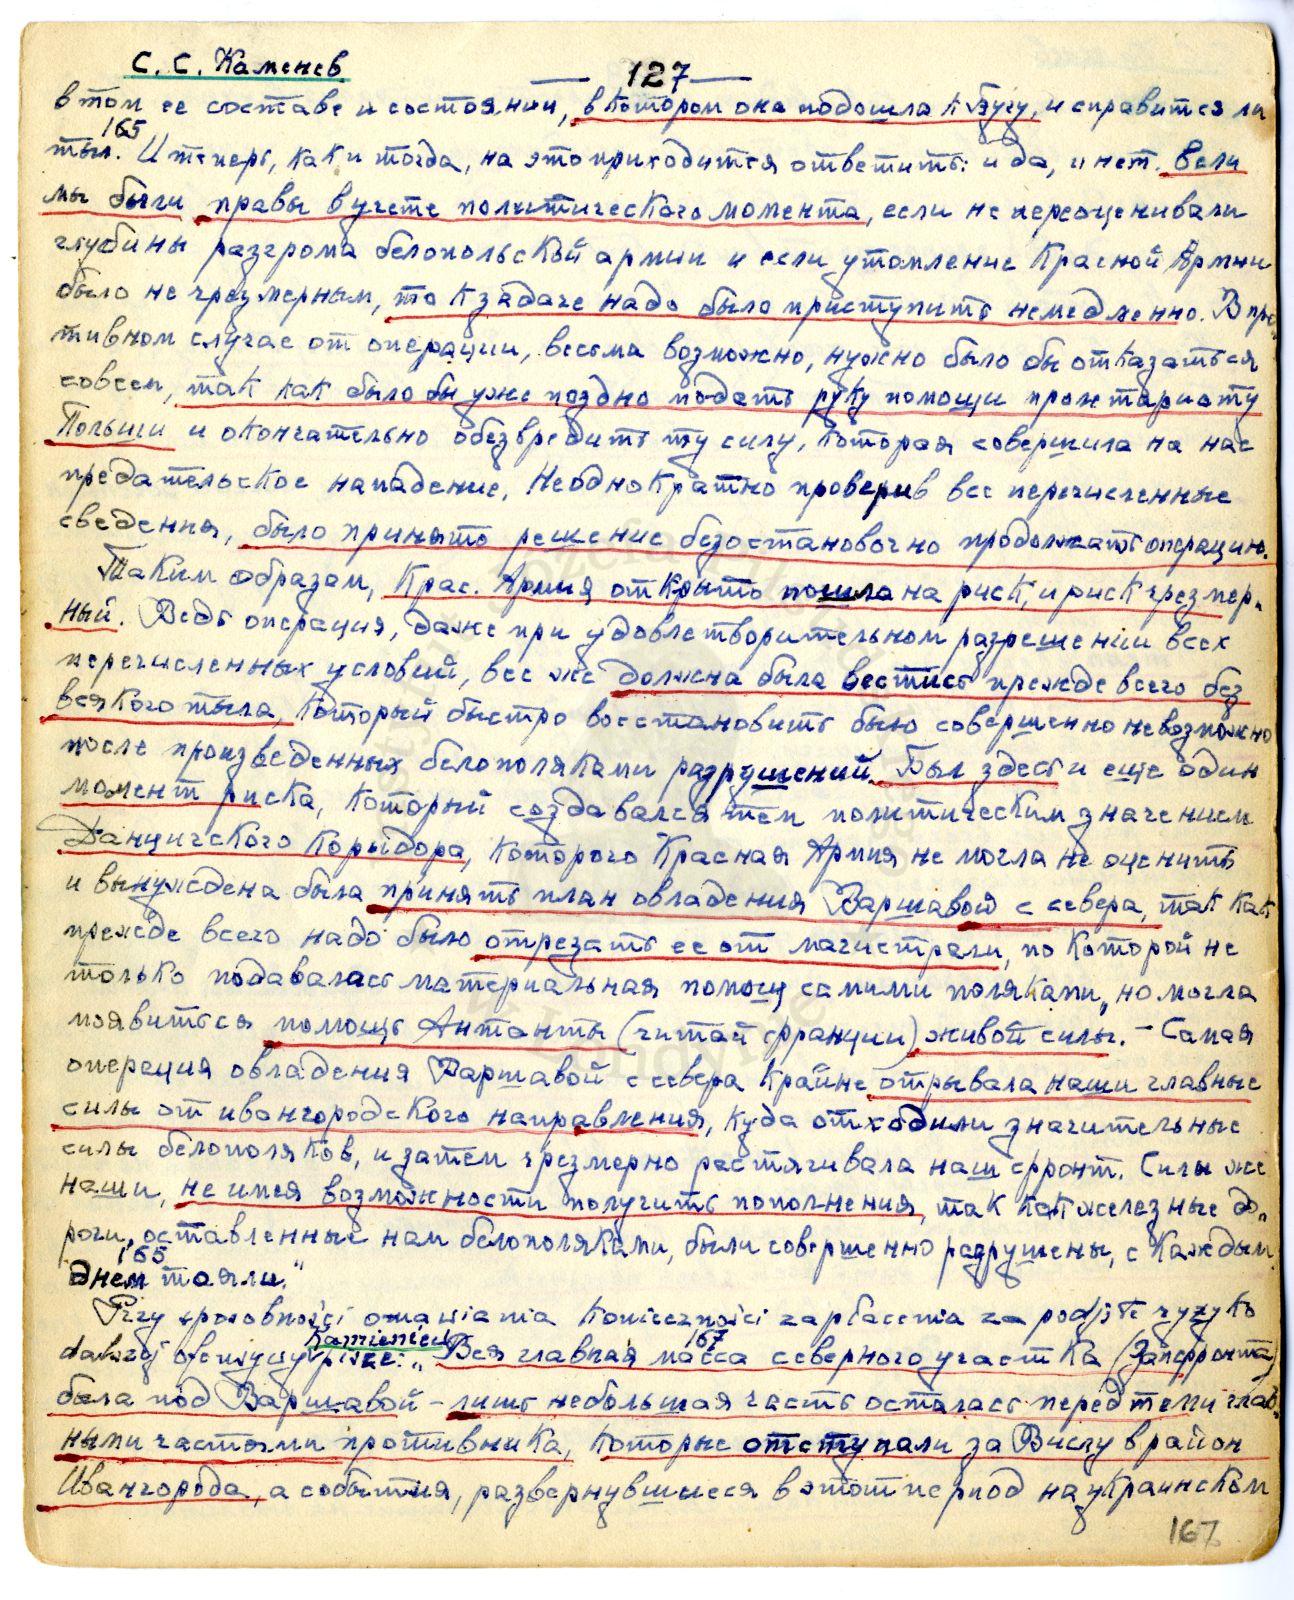 С. С. Каменев
— 127 —
в том ее составе и состоянии, в котором она подошла к Бугу, и справится ли
165
тыл. И теперь, как и тогда, на это приходится ответить: и да, и нет. Если
мы были правы в учете политического момента, если не переоценивали
глубины разгрома белопольской армии и если утомление Красной Армии
было не чрезмерным, то к задаче надо было приступить немедленно. В про-
тивном случае от операции, весьма возможно, нужно было бы отказаться
совсем, так как было бы уже поздно подать руку помощи пролетариату
Польши и окончательно обезвредить ту силу, которая совершила на нас
предательское нападение. Неоднократно проверив все перечисленные
сведения, было принято решение безостановочно продолжать операцию.
Таким образом, Крас. Армия открыто пошла на риск, и риск чрезмер-
ный. Ведь операция, даже при удовлетворительном разрешении всех
перечисленных условий, все же должна была вестись прежде всего без
всякого тыла, который быстро восстановить было совершенно невозможно
после произведенных белополяками разрушений. Был здесь и еще один
момент риска, который создавался тем политическим значением
Данцигского Коридора, которого Красная Армия не могла не оценить
и вынуждена была принять план овладения Варшавой с севера, так как
прежде всего надо было отрезать ее от магистрали, по которой не
только подавалась материальная помощь самими поляками, но могла
появиться помощь Антанты (читай Франции) живой силы. – Самая
операция овладения Варшавой с севера крайне отрывала наши главные
силы от ивангородского направления, куда отходили значительные
силы белополяков, и затем чрезмерно растягивала наш фронт. Силы же
наши, не имея возможности получить пополнения, так как железные до-
роги, оставленные нам белополяками, были совершенно разрушены, с каждым
165
днем таяли."
Przy sposobności omawiania konieczności zapłacenia za podjęte ryzyko
dalszej ofensywy Kamieniew pisze: „Вся главная масса северного участка (Запфронта)
167
была под Варшавой – лишь небольшая часть осталась перед теми глав-
ными частями противника, которые отступали за Вислу в район
Ивангорода, а события, развернувшиеся в этот период на украинском
167